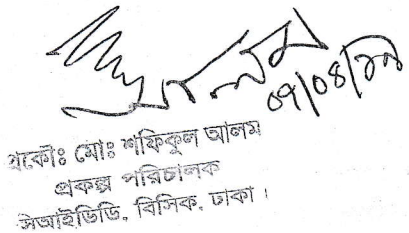 আলম
০৭/০৪/১৯
প্রকৌঃ মোঃ শফিকুল আলম
প্রকল্প পরিচালক
সিআইডিডি, বিসিক, ঢাকা।